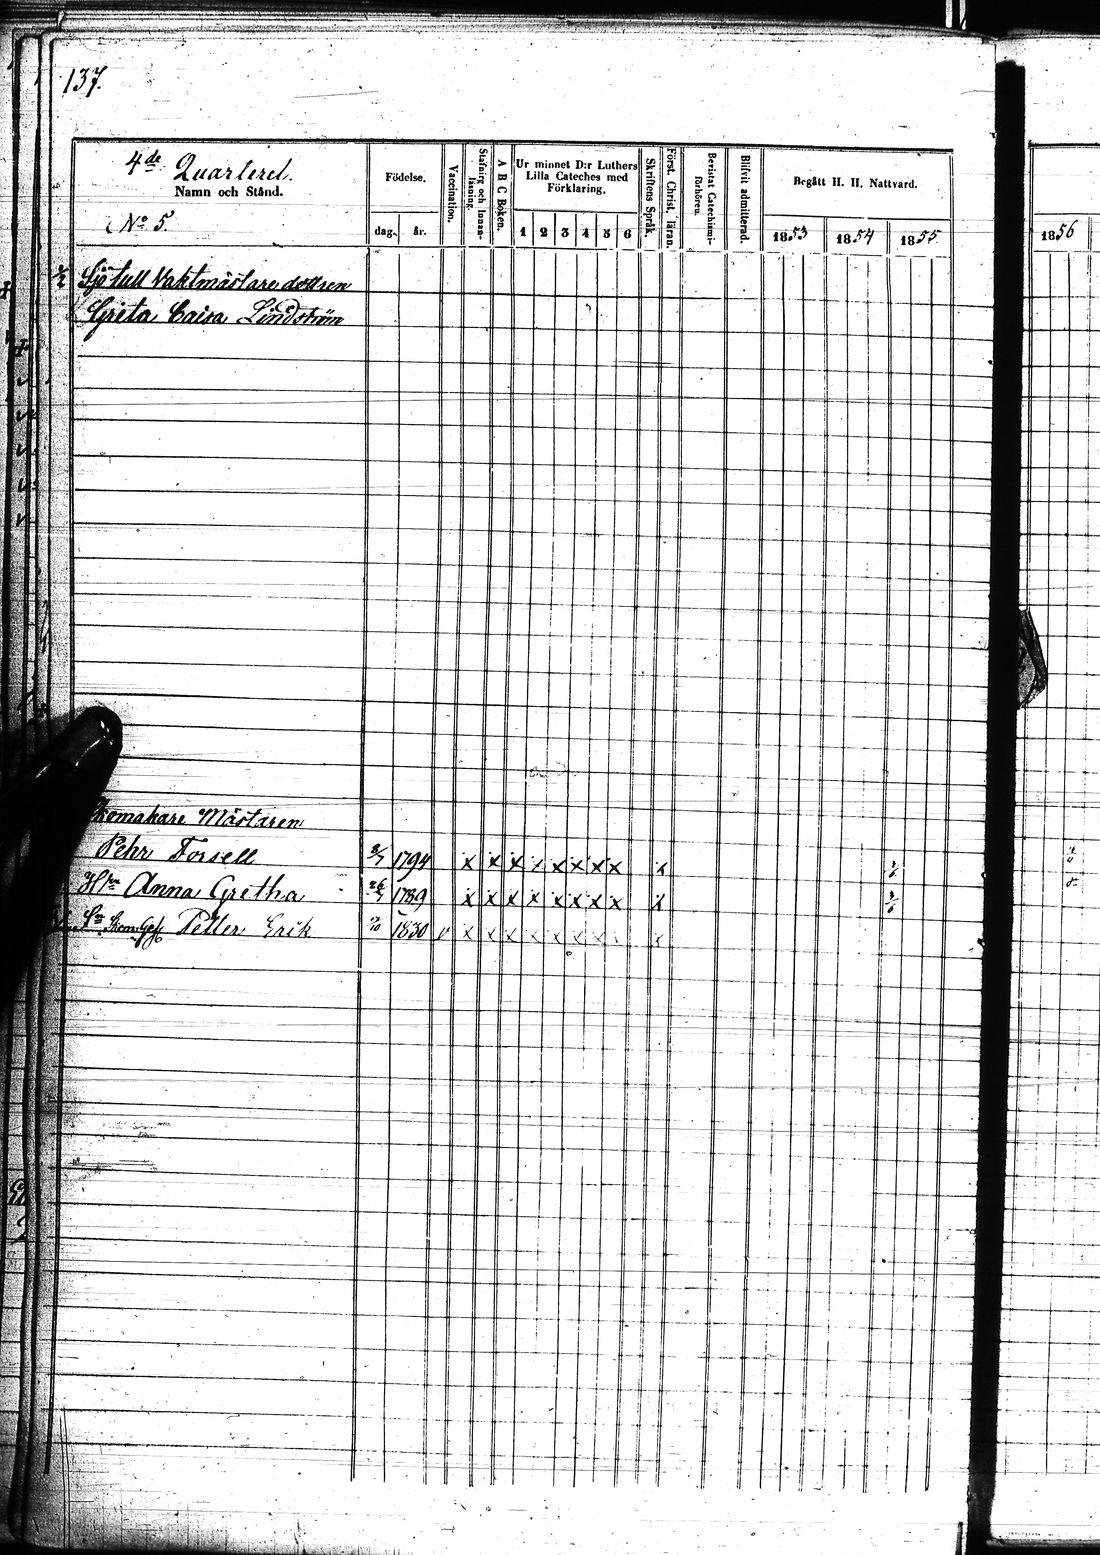 137.
4de Quarteret.
Namn och Stånd.
No 5.
Födelse.
dag. år.
Vaccination.
Stafning och Innan-
läsning.
A B C Boken.
Ur minnet D:r Luthers
Lilla Cateches med
Förklaring.
1 2 3 4 5 6
Skriftens Språk.
Först. Christ. läran.
Bevistat Catechismi-
förhören.
Blifvit admitterad.
Begått H. H. Nattvard.
1853 1854 1855
1856
Sjötull Vaktmästare dottren
Greta Caisa Lindström
Skomakare Mästaren
Pehr Forsell 1794 x x x x x x x x x
Hn Anna Gretha 26/7 1789 x x x x x x x x x
Sn Skom. Ges. Petter Erik 1830 v x x x x x x x x x